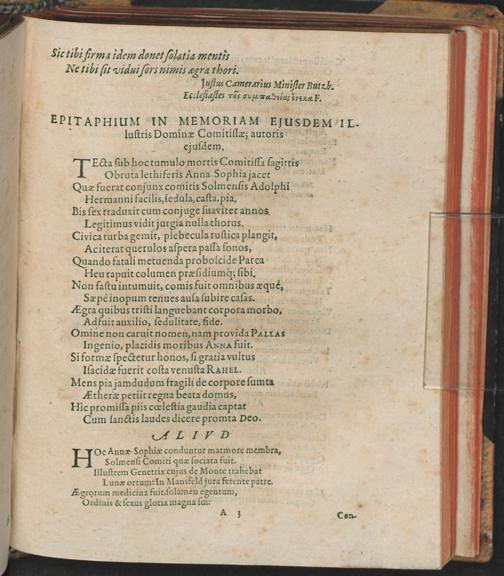 Sic tibi firma idem donet solatia mentis
Ne tibi sit vidui sors nimis ægra thori.
Justus Camerarius Minister Butzb.
Ecclesiastes τῆς συμπαθείας ἕνεκα F.
EPITAPHIUM IN MEMORIAM EJUSDEM IL-
lustris Dominæ Comitissæ; autoris
ejusdem.
TEcta sub hoc tumulo mortis Comitissa sagittis
Obruta lethiferis Anna Sophia jacet
Quæ fuerat conjunx comitis Solmensis Adolphi
Hermanni facilis, sedula, casta, pia.
Bis sex traduxit cum conjuge suaviter annos
Legitimus vidit jurgia nulla thorus.
Civica turba gemit, plebecula rustica plangit,
Ac iterat querulos aspera passa sonos,
Quando fatali metuenda proboscide Parca
Heu rapuit columen præsidiumq; sibi.
Non fastu intumuit, comis fuit omnibus æquè,
Sæpè inopum tenues ausa subire casas.
Ægra quibus tristi languebant corpora morbo,
Adfuit auxilio, sedulitate, fide.
Omine non caruit nomen, nam provida PALLAS
Ingenio, placidis moribus ANNA fuit.
Si formæ spectetur honos, si gratia vultus
Isacidæ fuerit costa venusta RAHEL.
Mens pia jamdudum fragili de corpore sumta
Ætheræ petiit regna beata domus,
Hic promissa piis cœlestia gaudia captat
Cum sanctis laudes dicere promta DEO.
ALIUD
HOc Annæ Sophiæ conduntur marmore membra,
Solmensi Comiti quæ sociata fuit.
Illustrem Genetrix cujus de Monte trahebat
Lunæ ortum: In Mansfeld jura ferente patre.
Ægrorum medicina fuit, solamen egentum,
Ordinis & sexus gloria magna sui:
A 3
Con-